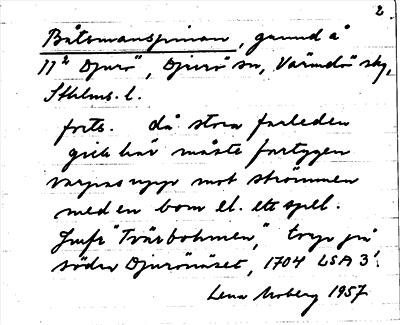 2
Båtsmanspinan, grund å
11² Djurö, Djurö sn, Värmdö sky,
Sthlms. l.
forts. då stora farleden
gick här måste fartygen
varpas upp mot strömmen
med en bom el. ett spel.
Jmfr "Tvärbohmen," torp på
södra Djurönäset, 1704 LSA 3!
Lena Moberg 1957